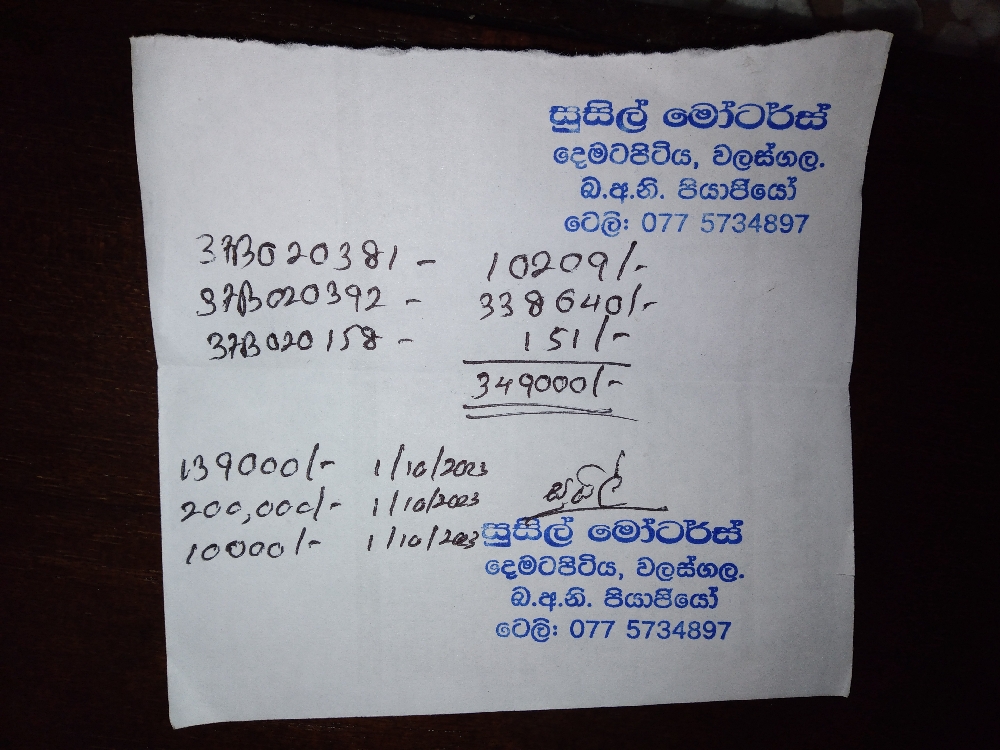 සුසිල් මෝටර්ස්
දෙමටපිටිය, වලස්ගල.
බ.අ.නි. පියාජියෝ
ටෙලි: 077 5734897
37B020381 - 10209/-
37B020392 - 338640/-
37B020158 - 151/-
349000/-
139000/- 1/10/2023
200,000/- 1/10/2023
10000/- 1/10/2023
සුසිල්
සුසිල් මෝටර්ස්
දෙමටපිටිය, වලස්ගල.
බ.අ.නි. පියාජියෝ
ටෙලි: 077 5734897